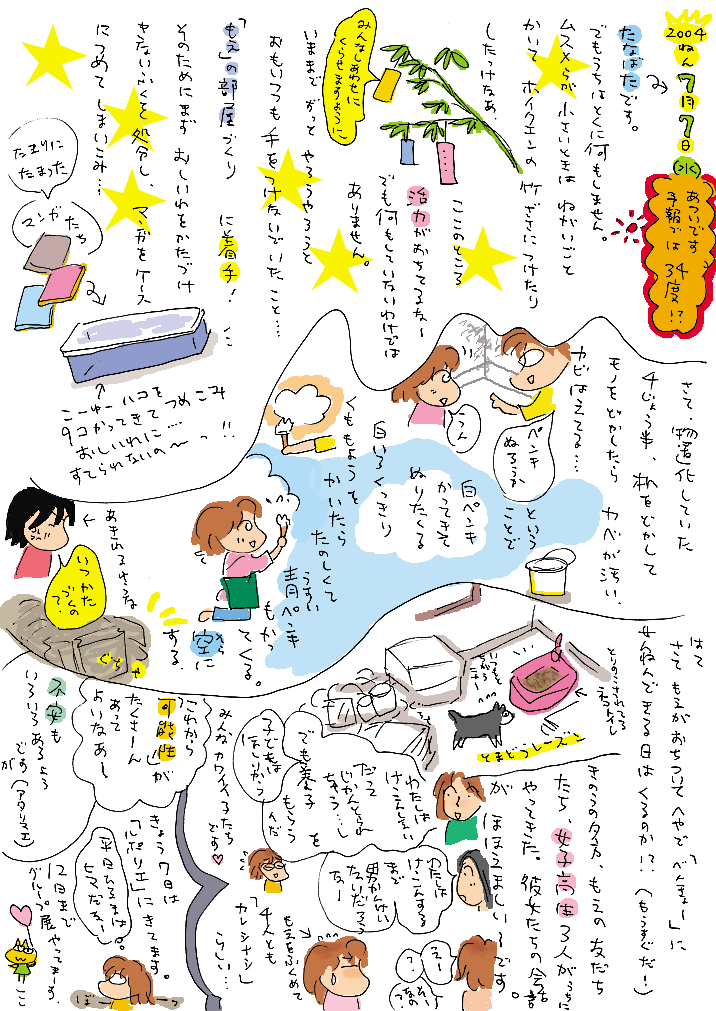 2004
ねん
7月7日
(水)
あついです
予報では
34度!?
たなばたです。
でもうちはとくに何もしません。
ムスメらが小さいときは ねがいごと
かいて ホイクエンの竹ざさにつけたり
したっけなあ、
みんなしあわせに
くらせますように
ここのところ
活力がおちてるな〜
でも何もしていないわけでは
ありません。
いままでずっと やろうやろうと
おもいつつも手をつけないでいたこと…
「もえ」の部屋づくり に着手!
そのためにまず おしいれをかたづけ
きないふくを処分し、マンガをケース
につめてしまいこみ…
たまりに
たまった
マンガたち
こーゆーハコを
9コかってきてつめこみ
おしいれに…
すてられないの〜っ!!
さて、物置化していた
4じょう半、机をどかして
モノをどかしたら カベが汚い、
カビはえてる…
ペンキ
ぬろうか
うん
という
ことで
白ペンキ
かってきて
ぬりたくる
白いろくっきり
くももようを
かいたら
たのしくて
うすい
青ペンキ
もかっ
てくる。
カベを
空に
する、
あきれるゆうな
いつかた
づくの
?
ぐちゃ
はて
さて もえがおちついてへやで「べんきょー」に
せんねんできる日はくるのか!?(もうすぐだー!)
とりのこされてる
とまどうレーズン
きのうの夕方、もえの友だち
たち、女子高生3人がうちに
やってきた。彼女たちの会話
が ほほえましいです。
わたしは
けっこんする
まで
男かんけい
ないだろう
なー
えー
?
わたしは
けっこんしない
だって
じかんとられ
ちゃう…し
でも養子
を
もらう
んだ
子どもは
ほしいから
もえをふくめて
4人とも
「カレシナシ」
らしい…
みんなカワイイ子たち
です♥
これから
「可能性」が
たくさーん
あって
よいなあー
不安も
いろいろあるよう
ですが(アタリマエ)
きょう7日は
「ルポリエ」にきてます。
平日ひるまは
ヒマだなー
12日まで
グループ展やってまーす。
ここ
ぼーっ